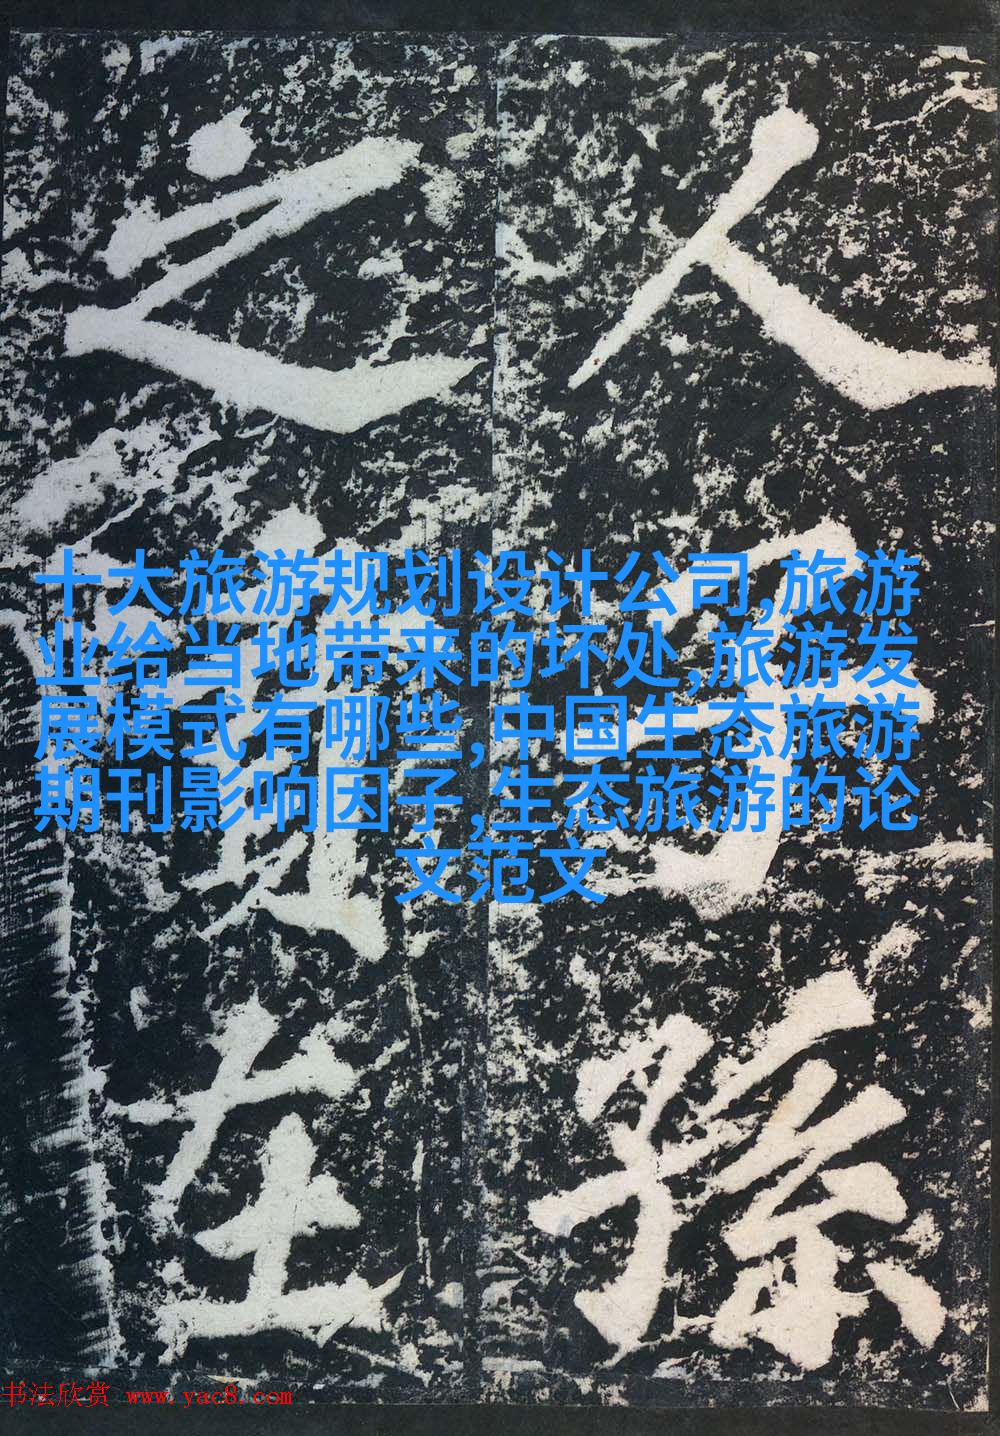 人子孫
之賢在
十大旅游规划设计公司,旅游
业给当地带来的坏处,旅游发
展模式有哪些,中国生态旅游
期刊影响因子,生态旅游的论
文范文
书法欣赏 www.yac8.com